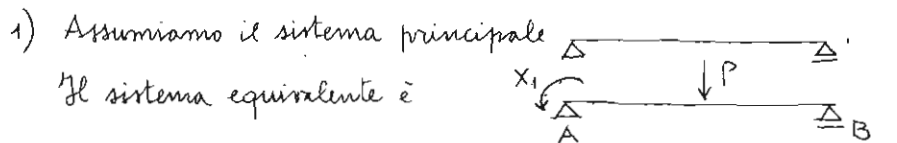 1) Assumiamo il sistema principale
Il sistema equivalente è
X₁ P
A B